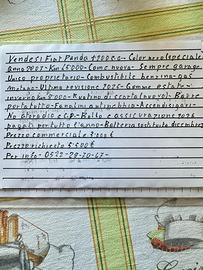 Vendesi Fiat Panda 1100 c.c - Color nero speciale
Anno 2007 - Km 65000 - Come nuova - Sempre garage
Unico proprietario - Combustibile benzina-gas
metano - Ultima revisione 2025 - Gomme estate -
inverno Km 8000 - Ruotino di scorta (nuovo) - Barre
portatutto - Fanalini antinebbia - Accendisigari -
No Autoradio e C.D - Bollo e assicurazione 2026
pagati per tutto l'anno - Batteria sostituita dicembre
Prezzo commerciale €
Prezzo richiesto € 5.500 €
Per info - 0522-